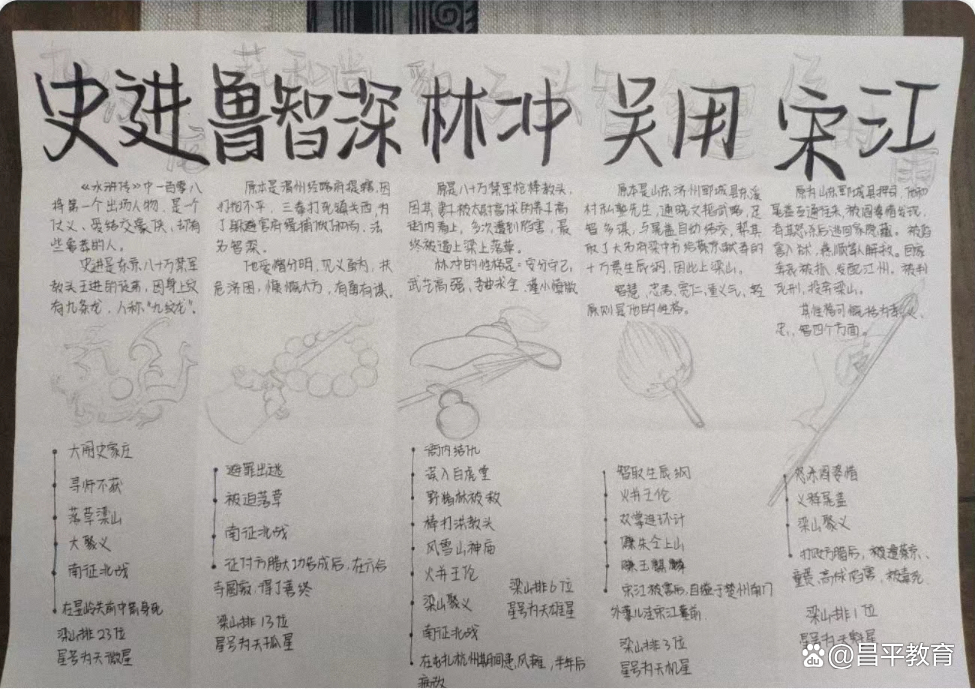 史进
《水浒传》中一百零八
将第一个出场人物，是个
仗义、爱结交豪侠，却有
些鲁莽的人。
史进是东京八十万禁军
教头王进的徒弟，因身上纹
有九条龙，人称“九纹龙”。
大闹史家庄
寻师不获
落草梁山
大聚义
南征北战
梁山排23位
星号为天微星
鲁智深
原本是渭州经略府提辖，因
打抱不平，三拳打死镇关西，为
了躲避官府缉捕做了和尚，法
名智深。
他爱憎分明，见义勇为，扶
危济困，慷慨大方，有勇有谋。
避罪出逃
被迫落草
南征北战
征讨方腊大功告成后，在六合
寺圆寂，得了善终
梁山排13位
星号为天孤星
林冲
原是八十万禁军枪棒教头，
因其妻子被太尉高俅的养子高
衙内看上，多次遭到陷害，最
终被逼上梁山落草。
林冲的性格是：安分守己，
武艺高强，委曲求全，谨小慎微
衙内结仇
误入白虎堂
野猪林被救
棒打洪教头
风雪山神庙
火并王伦
梁山聚义
南征北战
梁山排6位
星号为天雄星
吴用
原本是山东济州郓城县东溪
村私塾先生，通晓文韬武略，足
智多谋，与晁盖自幼结交，帮其
十万贯生辰纲，因此上梁山。
智慧，忠诚，宽仁，重义气，轻
原则是他的性格。
智取生辰纲
火并王伦
双掌连环计
赚朱仝上山
赚玉麒麟
宋江被害后，自缢于楚州南门
外蓼儿洼宋江墓前
梁山排3位
星号为天机星
宋江
死刑，投奔梁山。
怒杀阎婆惜
义释晁盖
梁山聚义
打败方腊后，被遭蔡京、
童贯、高俅陷害，被毒死
梁山排1位
星号为天魁星
@昌平教育